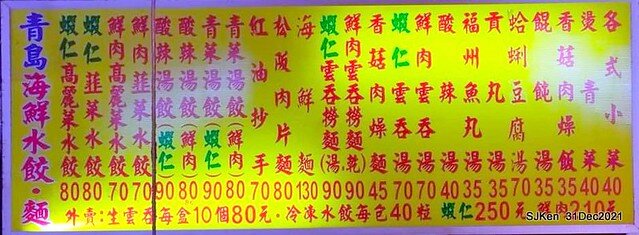 青島海鮮水餃．麵
蝦仁高麗菜水餃80
蝦仁韮菜水餃80
鮮肉高麗菜水餃70
鮮肉韮菜水餃70
酸辣湯餃(蝦仁)90
酸辣湯餃(鮮肉)80
青菜湯餃(蝦仁)90
青菜湯餃(鮮肉)80
紅油抄手70
松阪肉片麵80
海鮮麵130
蝦仁雲吞撈麵(湯90
鮮肉雲吞撈麵乾)90
香菇肉燥麵45
蝦仁雲吞湯70
鮮肉雲吞湯70
酸辣湯40
福州魚丸湯35
貢丸湯35
蛤蜊豆腐湯70
餛飩湯35
香菇肉燥飯35
燙青菜40
各式小菜40
外賣:生雲吞每盒10個80元．冷凍水餃每包40粒 蝦仁250元 鮮肉210元
SJKen 31Dec2021